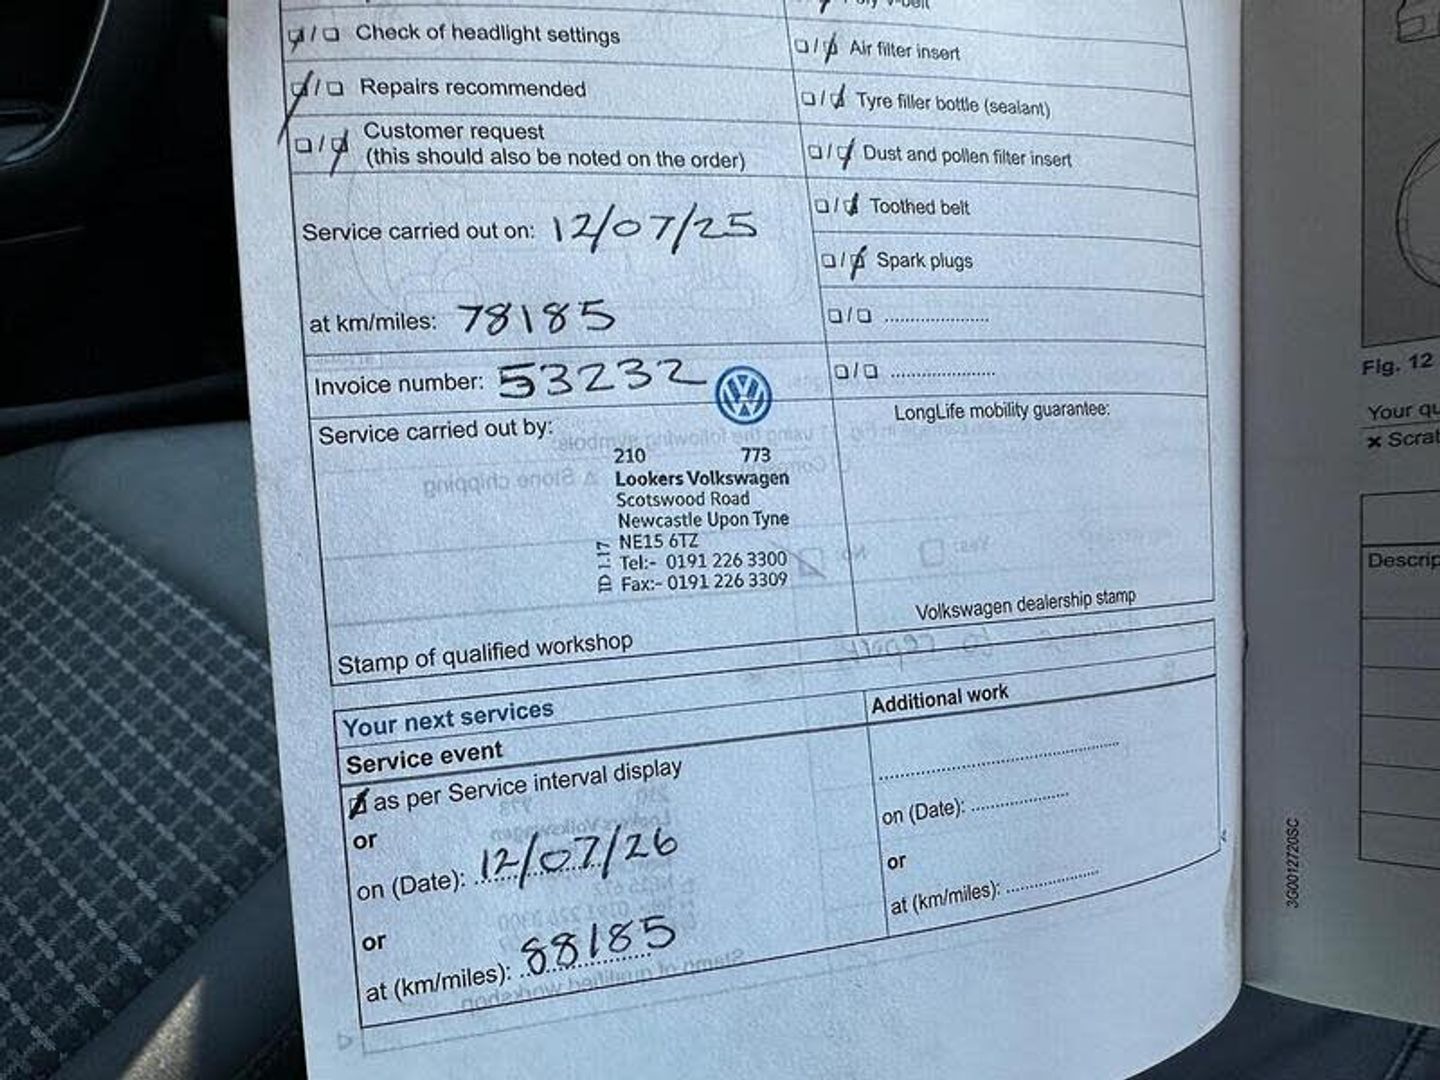 Poly V-belt
Check of headlight settings
Air filter insert
Repairs recommended
Tyre filler bottle (sealant)
Customer request
(this should also be noted on the order)
Dust and pollen filter insert
Toothed belt
Service carried out on: 12/07/25
Spark plugs
at km/miles: 78185
Invoice number: 53232
Service carried out by:
LongLife mobility guarantee:
210 773
Lookers Volkswagen
Scotswood Road
Newcastle Upon Tyne
NE15 6TZ
Tel:- 0191 226 3300
Fax:- 0191 226 3309
TD 1.17
Stamp of qualified workshop
Volkswagen dealership stamp
Your next services
Additional work
Service event
as per Service interval display
or
on (Date): 12/07/26
or
at (km/miles): 88185
on (Date):
or
at (km/miles):
3G0012720SC
Fig. 12
Your qu
× Scrat
Descrip